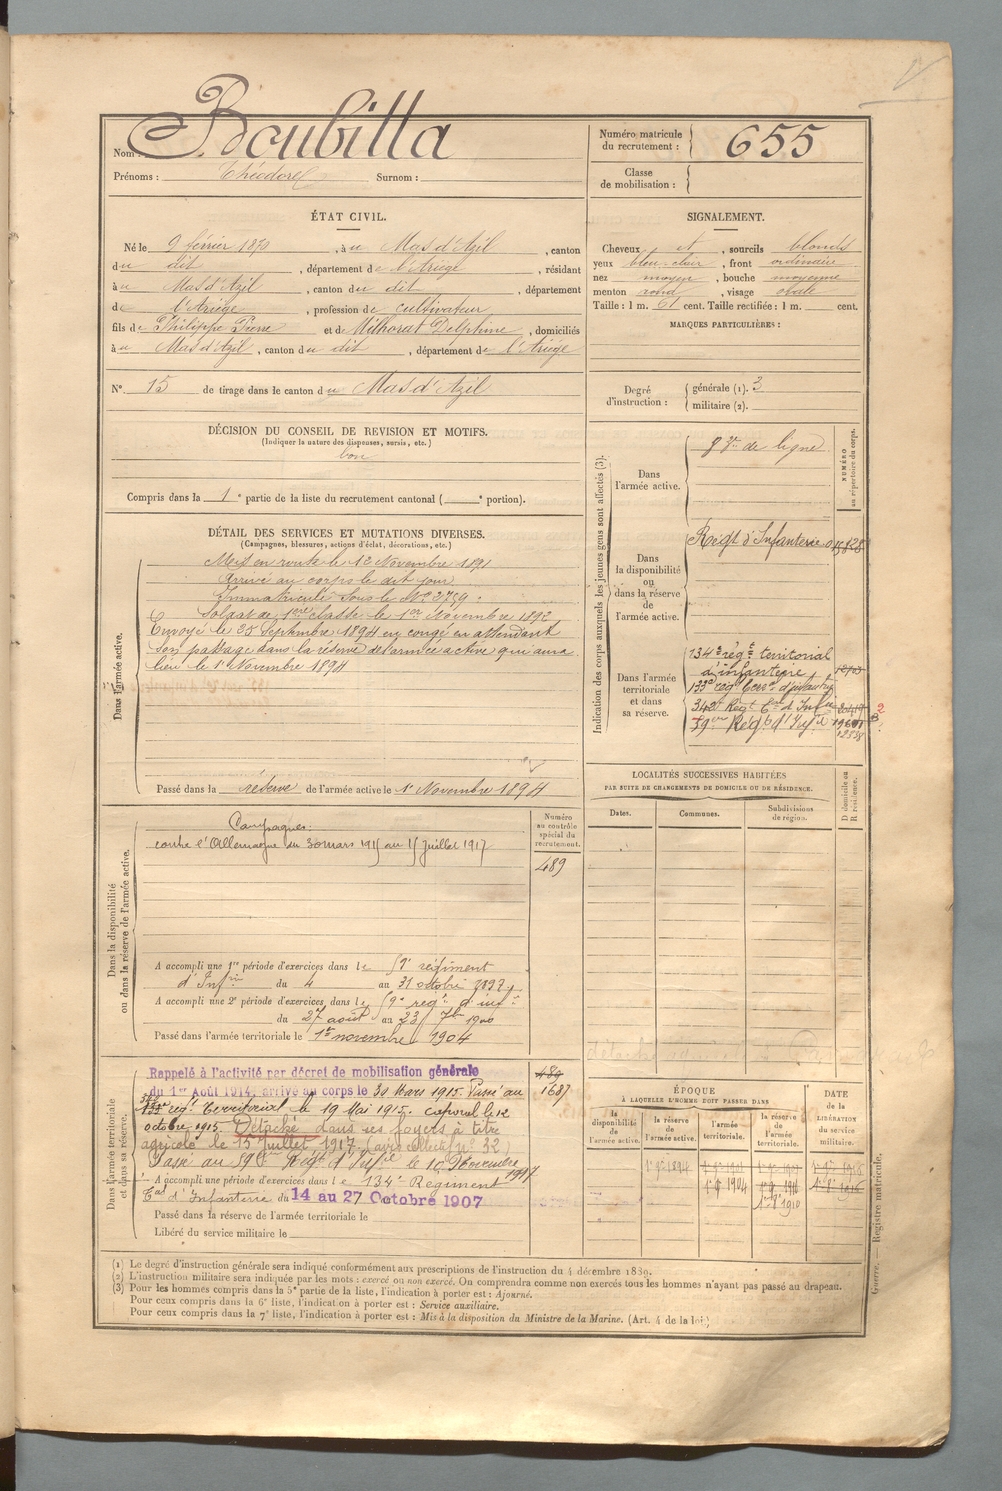 Nom : Boubilla
Prénoms : Théodore Surnom :
Numéro matricule du recrutement : 655
Classe de mobilisation :
ÉTAT CIVIL.
Né le 9 février 1870, à u Mas d'Azil, canton
du dit, département de l'Ariège, résidant
à u Mas d'Azil, canton du dit, département
de l'Ariège, profession de cultivateur
fils de Philippe Pierre et de Milhorat Delphine, domiciliés
à u Mas d'Azil, canton du dit, département de l'Ariège
N° 15 de tirage dans le canton du Mas d'Azil
SIGNALEMENT.
Cheveux et, sourcils blonds
yeux bleu-clair, front ordinaire
nez moyen, bouche moyenne
menton rond, visage ovale
Taille : 1 m. 61 cent. Taille rectifiée : 1 m. cent.
MARQUES PARTICULIÈRES :
Degré d'instruction : générale (1). 3
militaire (2).
DÉCISION DU CONSEIL DE REVISION ET MOTIFS.
(Indiquer la nature des dispenses, sursis, etc.)
bon
Compris dans la 1e partie de la liste du recrutement cantonal ( e portion).
DÉTAIL DES SERVICES ET MUTATIONS DIVERSES.
(Campagnes, blessures, actions d'éclat, décorations, etc.)
Dans l'armée active.
Mis en route le 12 Novembre 1891
Arrivé au corps le dit jour
Immatriculé sous le N° 2759
Soldat de 1ère classe le 1er Novembre 1892
Envoyé le 25 Septembre 1894 en congé en attendant
son passage dans la réserve de l'armée active qui aura
lieu le 1r Novembre 1894
Passé dans la réserve de l'armée active le 1r Novembre 1894
Indication des corps auxquels les jeunes gens sont affectés (3).
NUMÉRO au répertoire du corps.
Dans l'armée active.
de ligne
Dans la disponibilité ou dans la réserve de l'armée active.
Regt d'Infanterie
Dans l'armée territoriale et dans sa réserve.
134e régt territorial
d'infanterie
133e régt terr. d'infant
342 Régt d'Inf
Rég d'Inf
LOCALITÉS SUCCESSIVES HABITÉES
PAR SUITE DE CHANGEMENTS DE DOMICILE OU DE RÉSIDENCE.
Dates. Communes. Subdivisions de région. D domicile ou R résidence.
Dans la disponibilité ou dans la réserve de l'armée active.
Numéro au contrôle spécial du recrutement.
489
Campagnes :
contre l'Allemagne du 30 mars 1915 au 15 juillet 1917
A accompli une 1re période d'exercices dans le 59e régiment
d'Infie du 4 au 31 octobre 1897
A accompli une 2e période d'exercices dans le 59e régt d'inf
du 27 août au 23 7bre 1900
Passé dans l'armée territoriale le 1er novembre 1904
Dans l'armée territoriale et dans sa réserve.
489
1687
Rappelé à l'activité par décret de mobilisation générale
du 1er Août 1914, arrivé au corps le 30 Mars 1915. Passé au
régt Territorial le 19 Mai 1915. caporal le 12
octobre 1915. Détaché dans ses foyers à titre
agricole le 15 Juillet 1917 (avis collectif n° 32)
Passé au Régt d'Infie le 10 Novembre 1917
A accompli une période d'exercices dans le 134e Régiment
d'Infanterie du 14 au 27 Octobre 1907
Passé dans la réserve de l'armée territoriale le
Libéré du service militaire le
ÉPOQUE
À LAQUELLE L'HOMME DOIT PASSER DANS
la disponibilité de l'armée active.
la réserve de l'armée active.
l'armée territoriale.
la réserve de l'armée territoriale.
DATE de la LIBÉRATION du service militaire.
(1) Le degré d'instruction générale sera indiqué conformément aux prescriptions de l'instruction du 4 décembre 1889.
(2) L'instruction militaire sera indiquée par les mots : exercé ou non exercé. On comprendra comme non exercés tous les hommes n'ayant pas passé au drapeau.
(3) Pour les hommes compris dans la 5e partie de la liste, l'indication à porter est : Ajourné.
Pour ceux compris dans la 6e liste, l'indication à porter est : Service auxiliaire.
Pour ceux compris dans la 7e liste, l'indication à porter est : Mis à la disposition du Ministre de la Marine. (Art. 4 de la loi)
Guerre. — Registre matricule.